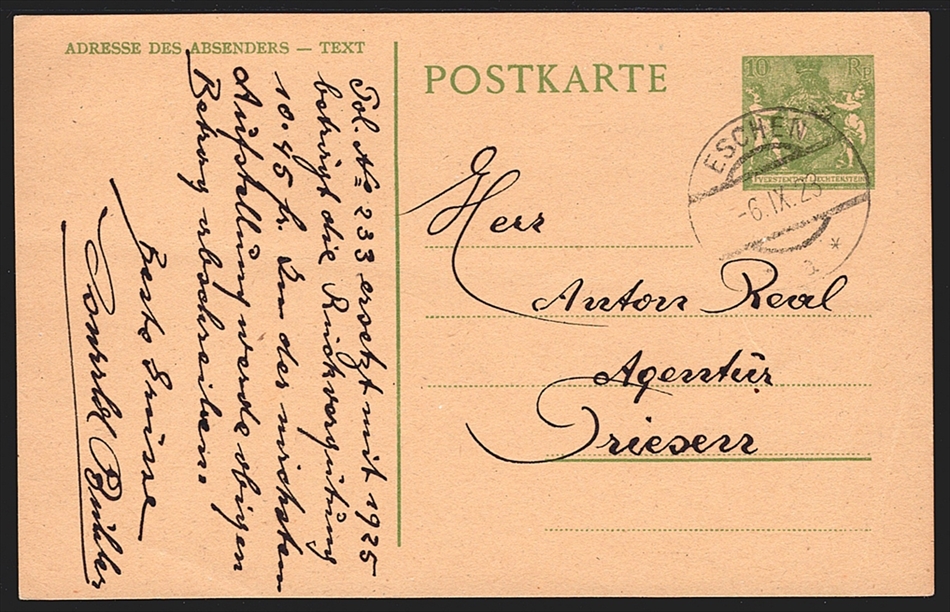 ADRESSE DES ABSENDERS — TEXT
Pol. No 233 ersetzt mit 1925
beträgt die Rückvergütung
10.45 fr. In der nächsten
Aufstellung werde obigen
Betrag abschreiben.
Beste Grüsse
Bühler
POSTKARTE
10 Rp
FÜRSTENTUM LIECHTENSTEIN
ESCHEN
-6.IX.25
a
*
Herr
Anton Real
Agentur
Triesen